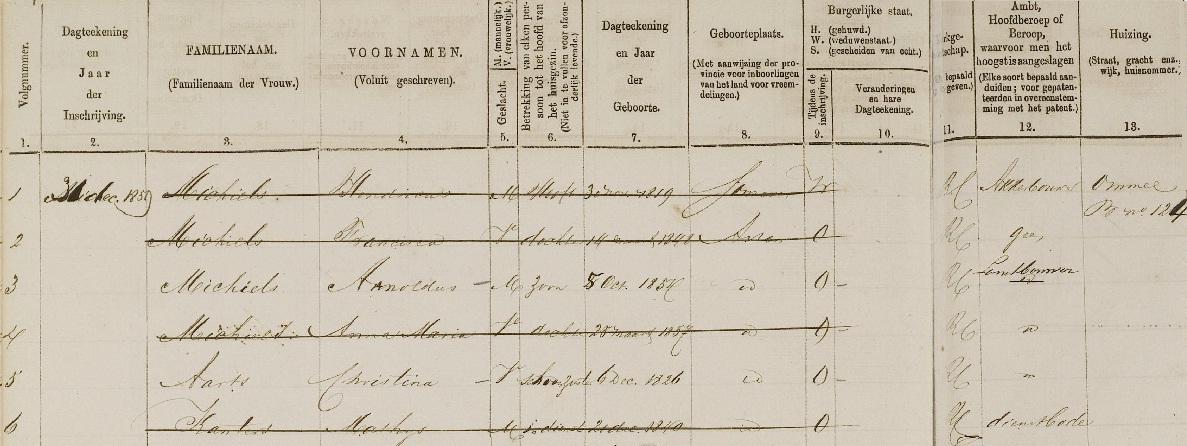 Volgnummer.
Dagteekening
en
Jaar
der
Inschrijving.
FAMILIENAAM.
(Familienaam der Vrouw.)
VOORNAMEN.
(Voluit geschreven).
Geslacht.
M. (mannelijk.)
V. (vrouwelijk.)
Betrekking van elken per-
soon tot het hoofd van
het huisgezin.
(Niet in te vullen voor afzon-
derlijk levende.)
Dagteekening
en Jaar
der
Geboorte.
Geboorteplaats.
(Met aanwijzing der pro-
vincie voor inboorlingen
van het land voor vreem-
delingen.)
Burgerlijke staat.
H. (gehuwd.)
W. (weduwenstaat.)
S. (gescheiden van echt.)
Tijdens de
inschrijving.
Veranderingen
en hare
Dagteekening.
rkge-
tschap.
bepaald
geven.)
Ambt,
Hoofdberoep of
Beroep,
waarvoor men het
hoogst is aangeslagen
(Elke soort bepaald aan-
duiden; voor gepaten-
teerden in overeenstem-
ming met het patent.)
Huizing.
(Straat, gracht enz.,
wijk, huisnommer.)
1. 2. 3. 4. 5. 6. 7. 8. 9. 10. 11. 12. 13.
1 dec. Michiels M Hoofd 1819 Someren W RC Akkerbouwer Ommel
No 124
2 Michiels Francisca V dochter 14 Asten O RC geen
3 Michiels Arnoldus M zoon 8 Oct. 1854 id O RC Landbouwer
4 Michiels Anna Maria V dochter 25 maart 1857 id O RC "
5 Aarts Christina V 6 Dec. 1826 id O RC "
6 Kanters Mathijs M dec 1840 O RC dienstbode